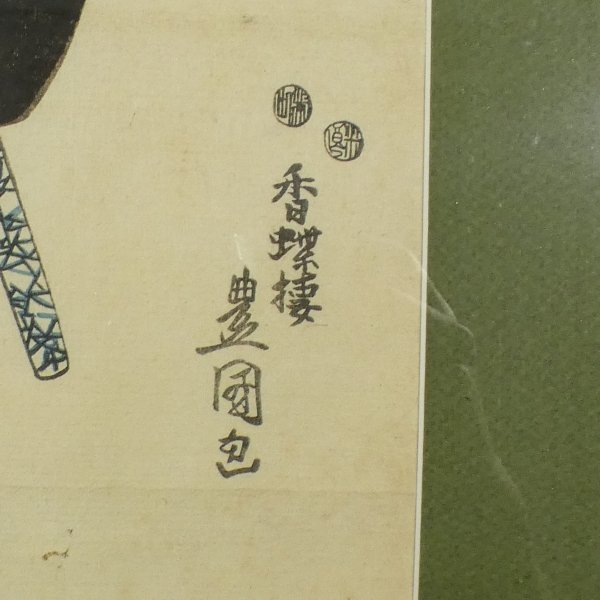 香蝶楼
豊国画